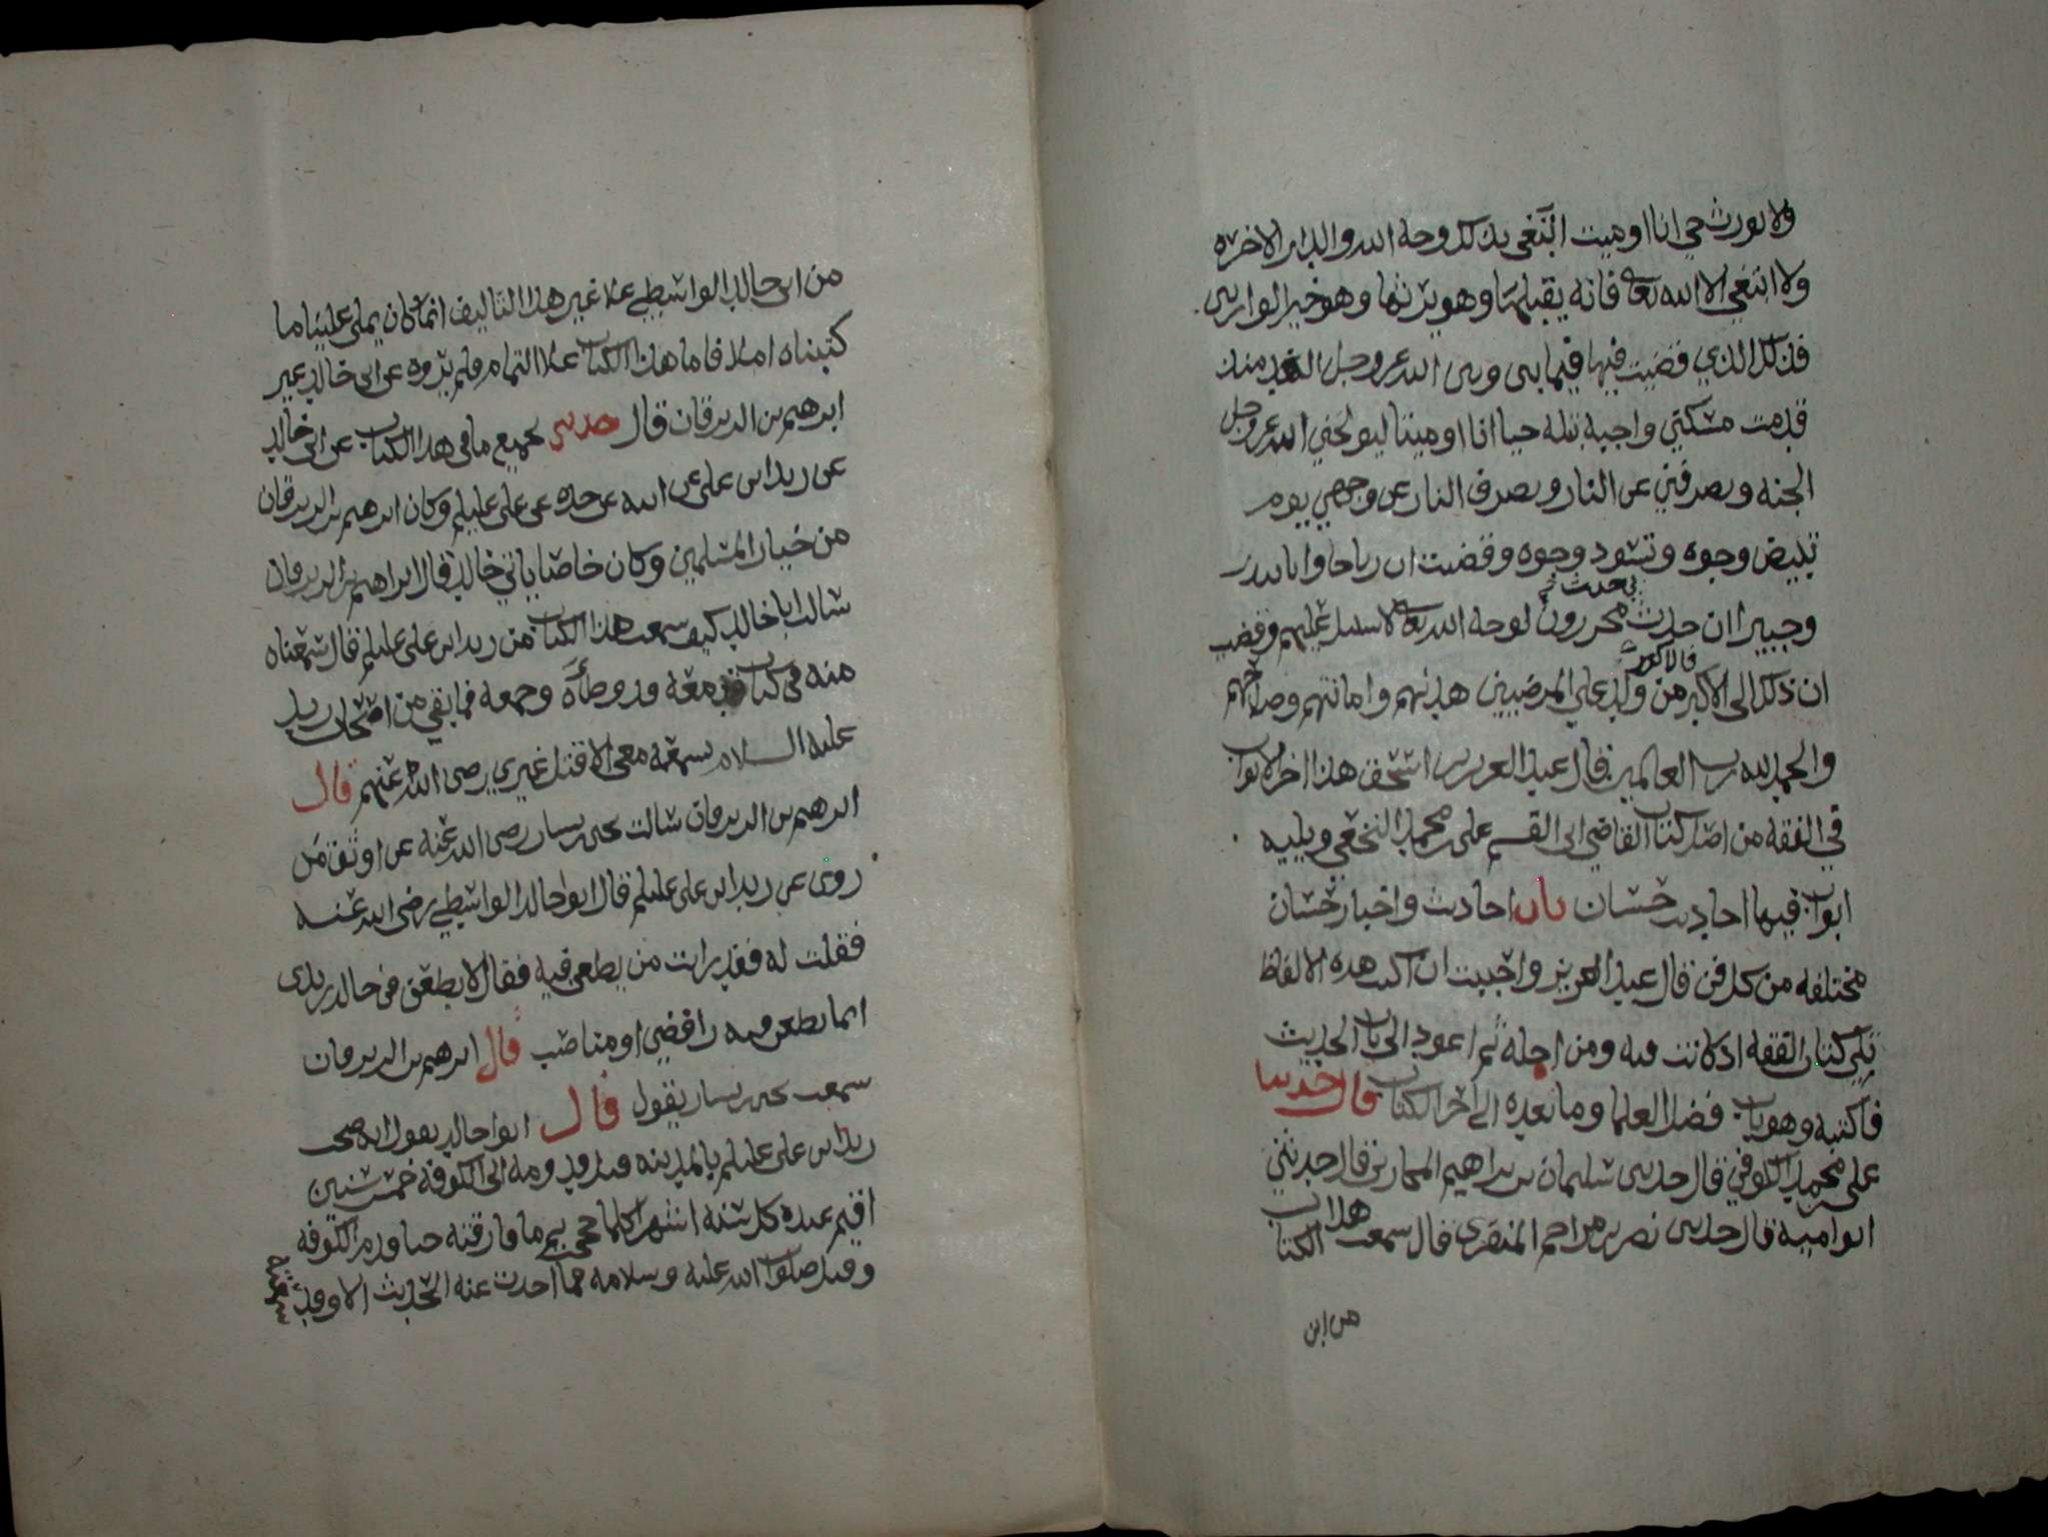 ولا يورث حي انا او ميت ابتغي بذلك وجه الله والدار الاخره
ولا ابتغي الا الله تعالى فانه يقبلها وهو يرثها وهو خير الوارثين
فذلك الذي قضيت فيها فيما بيني وبين الله عز وجل الغد منذ
قدمت مسكن واجبة بتلة حيا انا او ميتا ليولجني الله عز وجل
الجنه ويصرفني عن النار ويصرف النار عن وجهي يوم
تبيض وجوه وتسود وجوه وقضيت ان رباحا وابا نيزر
وجبيرا ان حدث بي حدث محررون لوجه الله تعالى لا سبيل عليهم وقضيت
ان ذلك الى الاكبر فالاكبر من ولد علي المرضيين هديهم وامانتهم وصلاحهم
والحمد لله رب العالمين قال عبد العزيز بن اسحق هذا اخر الابواب
في الفقه من اصل كتاب القاضي ابي القسم علي بن محمد النخعي ويليه
ابواب فيها احاديث حسان باب احاديث واخبار حسان
مختلفه من كل فن قال عبد العزيز واحببت ان اكتب هذه الالفاظ
تلي كتاب الفقه اذ كانت فيه ومن اجله ثم اعود الى باب الحديث
فاكتبه وهو باب فضل العلما وما بعده الى اخر الكتاب قال حدثنا
علي بن محمد الكوفي قال حدثني سليمان بن ابراهيم المحاربي قال حدثني
ابو اميه قال حدثني نصر بن مزاحم المنقري قال سمعت هذا الكتاب
من ابي
من ابي خالد الواسطي علا غير هذا التاليف انما كان يملي علينا ما
كتبناه املا فاما هذا الكتاب علا التمام فلم يروه عن ابي خالد غير
ابرهيم بن الزبرقان قال حدثني بجميع ما في هذا الكتاب عن ابي خالد
عن زيد ابن علي عن ابيه عن جده عن علي عليلم وكان ابرهيم بن الزبرقان
من خيار المسلمين وكان خاصا بابي خالد قال ابراهيم بن الزبرقان
سالت ابا خالد كيف سمعت هذا الكتاب من زيد ابن علي عليلم قال سمعناه
منه في كتاب معه قد وطاه وجمعه فما بقي من اصحاب زيد
عليه السلام سمعه معي الا قتل غيري رضي الله عنهم قال
ابرهيم بن الزبرقان سالت يحيى بن يسار رضي الله عنه عن اوثق من
روى عن زيد ابن علي عليلم قال ابو خالد الواسطي رضي الله عنه
فقلت له فقد رايت من يطعن فيه فقال لا يطعن في خالد زيدي
انما يطعن فيه رافضي او مناصب قال ابرهيم بن الزبرقان
سمعت يحيى بن يسار يقول قال ابو خالد يقول انه صحب
زيد ابن علي عليلم بالمدينه قبل قدومه الى الكوفه خمس سنين
اقيم عنده كل سنه اشهرا كلما حججت ثم ما فارقته حين قدم الكوفه
وقتل صلوات الله عليه وسلامه فما احدث عنه الحديث الا وقد سمعته